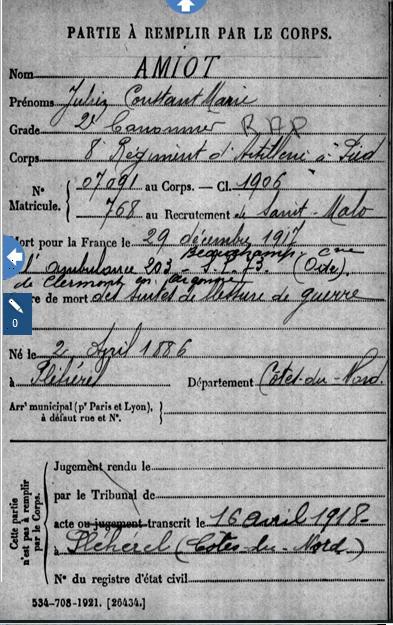 PARTIE À REMPLIR PAR LE CORPS.
Nom AMIOT
Prénoms Constant Marie
Grade 2e Canonnier
Corps 8e Régiment d'Artillerie à Pied
N° Matricule. { 07091 au Corps. — Cl. 1906
768 au Recrutement de Saint-Malo
Mort pour la France le 29 décembre 1917
à l'ambulance 203 - S.P. 73 (Oise).
de Clermont en Argonne
Genre de mort des suites de blessure de guerre
0
Né le 2 April 1886
à Pléhérel Département Côtes-du-Nord.
Arrt municipal (pr Paris et Lyon), à défaut rue et N°. }
Cette partie n'est pas à remplir par le Corps.
Jugement rendu le
par le Tribunal de
acte ou jugement transcrit le 16 avril 1918-
à Pléhérel (Côtes-du-Nord.)
N° du registre d'état civil
534-708-1921. [26434.]